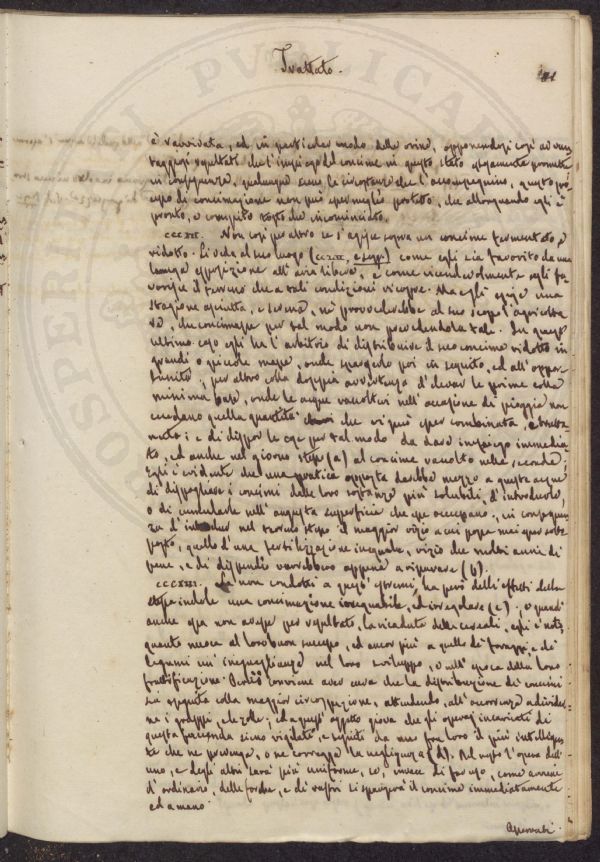 Trattato.
81
PROSPERI PVBLICA
è ravvivata, ed in particolar modo dalle orine, opponendosi così ai van-
taggiosi risultati che l'impiego del concime in questo stato
in conseguenza, qualunque siano le circostanze che l'accompagnino, questo
di concimazione non può esser meglio protetto, che allorquando egli è
pronto, e compito tosto che incominciato.
Non così per altro se s'agisce sopra un concime fermentato e
ridotto. Si veda al suo luogo come egli sia favorito da una
lunga esposizione all'aria libera, e come vicendevolmente egli fa-
vorisca il terreno che a tali condizioni ricopre. Ma egli esige una
stagione asciutta, e serena, nè provvederebbe al suo scopo l'agricolto-
re, che concimasse per tal modo non prevedendola tale. In quest'
ultimo caso egli ha l'arbitrio di distribuire il suo concime ridotto in
grandi o piccole masse, onde spargerlo poi in seguito, ed all'oppor-
tunità; per altro colla doppia avvertenza d'elevar le prime colla
minima base, onde le acque raccoltevi nell'occasione di pioggia non
eccedano quella quantità che vi può esser combinata,
e di dispor le cose per tal modo da dare impiego immedia-
to, ed anche nel giorno stesso (a) al concime raccolto nelle seconde;
Egli è evidente che una pratica opposta darebbe mezzo a queste acque
di dispogliare i concimi delle loro sostanze più solubili, d'introdurle,
o di cumularle nell'angusta superficie che esse occupano, in conseguen-
za d'indur nel terreno stesso il maggior vizio a cui possa mai esser sotto
posto, quello d'una fertilizzazione ineguale, vizio che molti anni di
pene, e di dispendio varrebbero appena a riparare (b).
Se non condotti a questi estremi, ha però degli effetti della
stessa indole una concimazione ineguabile, ed irregolare (c). E quand'
anche essa non avesse per risultato, la ricaduta delle cereali, essi è noto,
quanto nuoca al loro buon successo, ed ancor più a quello de' foraggi, e de'
legumi un'ineguaglianza nel loro sviluppo, o nell'epoca della loro
fruttificazione. Perciò conviene aver cura che la distribuzione de' concimi
sia eseguita colla maggior circospezione, attendendo, all'occorrenza a divider-
ne i gruppi, e le zolle; ed a quest'oggetto giova che gli operaj incaricati di
questa faccenda siano vigilati, e seguiti da uno fra loro il più intelligen-
te che ne prevenga, o ne corregga la negligenza (d). Nel resto l'opera dell'
uno, e degli altri sarà più uniforme, se, invece di farne uso, come avviene
d'ordinario, delle forche, e di rastri si spargerà il concime immediatamente
ed a mano.